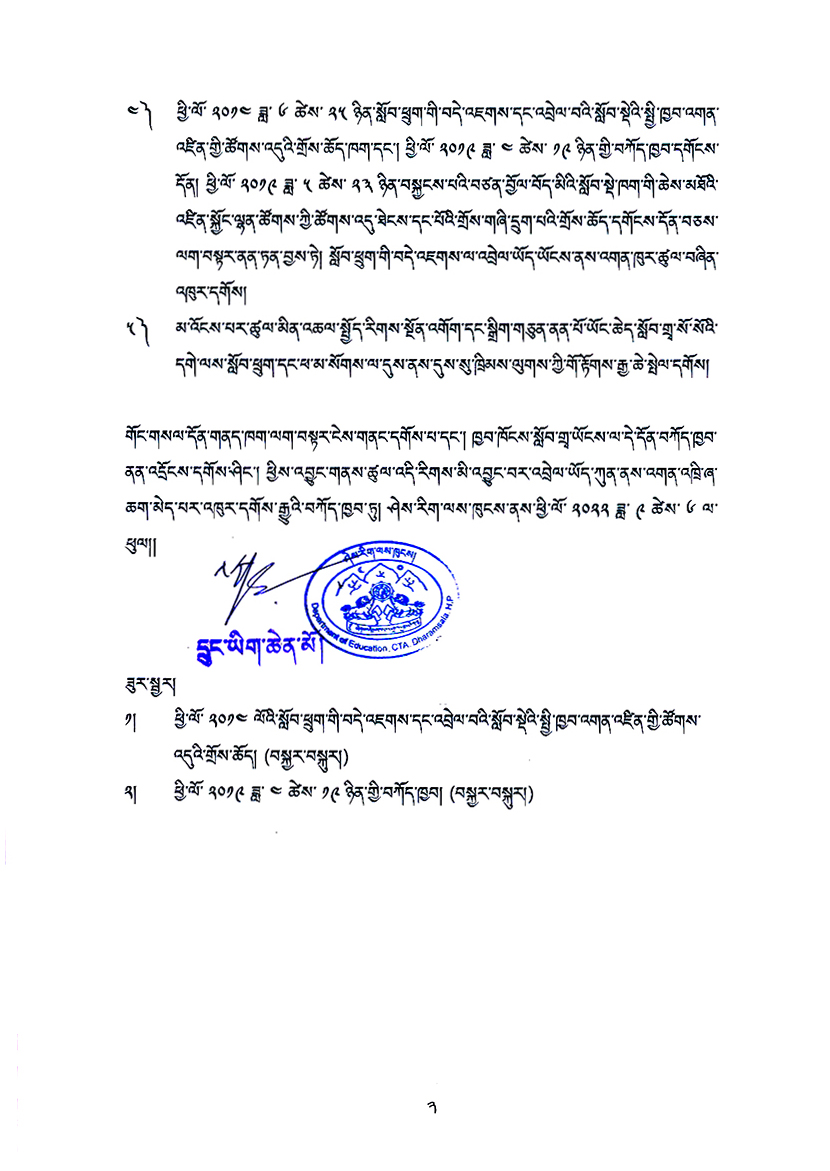 ༤༽ ཕྱི་ལོ་ ༢༠༡༤ ཟླ་ ༦ ཚེས་ ༢༥ ཉིན་སློབ་ཕྲུག་གི་བདེ་འཇགས་དང་འབྲེལ་བའི་སློབ་སྡེའི་སྤྱི་ཁྱབ་འགན་
འཛིན་གྱི་ཚོགས་འདུའི་གྲོས་ཆོད་ཁག་དང་། ཕྱི་ལོ་ ༢༠༡༩ ཟླ་ ༤ ཚེས་ ༡༩ ཉིན་གྱི་བཀོད་ཁྱབ་དགོངས་
དོན། ཕྱི་ལོ་ ༢༠༡༩ ཟླ་ ༥ ཚེས་ ༢༣ ཉིན་བསྐྱངས་པའི་བཙན་བྱོལ་བོད་མིའི་སློབ་སྡེ་ཁག་གི་ཆེས་མཐོའི་
འཛིན་སྐྱོང་ལྷན་ཚོགས་ཀྱི་ཚོགས་འདུ་ཐེངས་དང་པོའི་གྲོས་གཞི་དྲུག་པའི་གྲོས་ཆོད་དགོངས་དོན་བཅས་
ལག་བསྟར་ནན་ཏན་བྱས་ཏེ། སློབ་ཕྲུག་གི་བདེ་འཇགས་ལ་འབྲེལ་ཡོད་ཡོངས་ནས་འགན་ཁུར་ཚུལ་བཞིན་
འཁུར་དགོས།
༥༽ མ་འོངས་པར་ཚུལ་མིན་འཆལ་སྤྱོད་རིགས་སྔོན་འགོག་དང་སྒྲིག་གཅུན་ནན་པོ་ཡོང་ཆེད་སློབ་གྲྭ་སོ་སོའི་
དགེ་ལས་སློབ་ཕྲུག་དང་ཕ་མ་སོགས་ལ་དུས་ནས་དུས་སུ་ཁྲིམས་ལུགས་ཀྱི་གོ་རྟོགས་རྒྱ་ཆེ་སྤེལ་དགོས།
གོང་གསལ་དོན་གནད་ཁག་ལག་བསྟར་ངེས་གནང་དགོས་པ་དང་། ཁྱབ་ཁོངས་སློབ་གྲྭ་ཡོངས་ལ་དེ་དོན་བཀོད་ཁྱབ་
ནན་འདྲོངས་དགོས་ཤིང་། ཕྱིས་འབྱུང་གནས་ཚུལ་འདི་རིགས་མི་འབྱུང་བར་འབྲེལ་ཡོད་ཀུན་ནས་འགན་འཁྲི་ཞ་
ཆག་མེད་པར་འཁུར་དགོས་རྒྱུའི་བཀོད་ཁྱབ་ཏུ། ཤེས་རིག་ལས་ཁུངས་ནས་ཕྱི་ལོ་ ༢༠༢༢ ཟླ་ ༩ ཚེས་ ༦ ལ་
ཕུལ།།
ཤེས་རིག་ལས་ཁུངས།
Department of Education, CTA, Dharamsala, H.P
དྲུང་ཡིག་ཆེན་མོ།
ཟུར་སྦྱར།
༡། ཕྱི་ལོ་ ༢༠༡༤ ལོའི་སློབ་ཕྲུག་གི་བདེ་འཇགས་དང་འབྲེལ་བའི་སློབ་སྡེའི་སྤྱི་ཁྱབ་འགན་འཛིན་གྱི་ཚོགས་
འདུའི་གྲོས་ཆོད། (བསྐྱར་བསྐུར།)
༢། ཕྱི་ལོ་ ༢༠༡༩ ཟླ་ ༤ ཚེས་ ༡༩ ཉིན་གྱི་བཀོད་ཁྱབ། (བསྐྱར་བསྐུར།)
༣